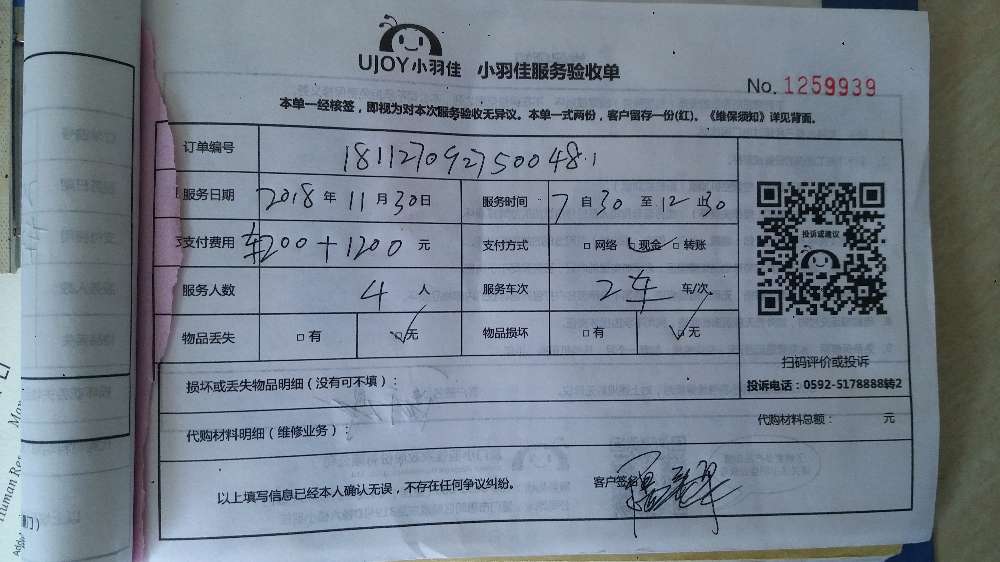 UJOY小羽佳 小羽佳服务验收单
No. 1259939
本单一经核签，即视为对本次服务验收无异议。本单一式两份，客户留存一份(红)。《维保须知》详见背面。
订单编号 181127092750048.1
服务日期 2018年11月30日 服务时间 7自30至12止30
支付费用 车200+1200元 支付方式 □网络 □现金 □转账
服务人数 4人 服务车次 2车 车/次
物品丢失 □有 □无 物品损坏 □有 □无
投诉或建议
扫码评价或投诉
投诉电话：0592-5178888转2
损坏或丢失物品明细（没有可不填）：
代购材料明细（维修业务）： 代购材料总额： 元
以上填写信息已经本人确认无误，不存在任何争议纠纷。 客户签名
Human Res